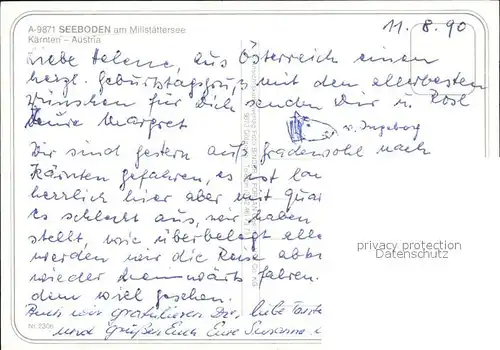 A-9871 SEEBODEN am Millstättersee
Kärnten – Austria
11. 8. 90
Liebe Helene, aus Österreich einen
herzl. Geburtstagsgruß mit den allerbesten
Wünschen für Dich senden Dir
Deine Margret
u. Ingeborg
Wir sind gestern auf geradewohl nach
Kärnten gefahren, es ist
herrlich hier aber mit
es schlecht aus, wir haben
stellt, wie überbelegt
werden wir die Reise
wieder heimwärts fahren.
dem viel gesehen.
Auch wir gratulieren Dir, liebe
und grüßen Euch Eure Susanne
Nr. 2306
privacy protection
Datenschutz